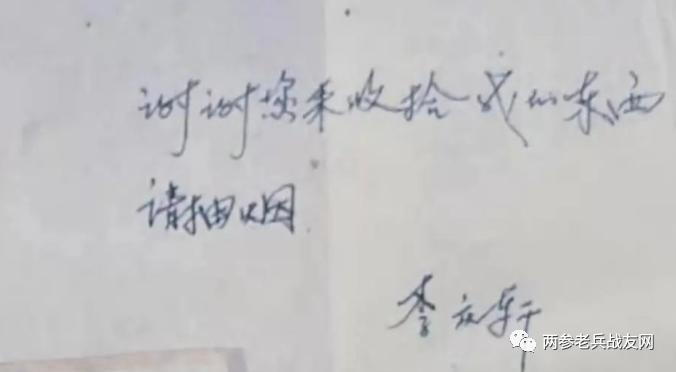 谢谢您来收拾我的东西
请抽烟
李文轩
两参老兵战友网